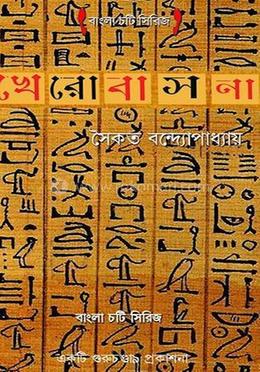 বাংলা চটি সিরিজ
খেরোবাসনা
সৈকত বন্দ্যোপাধ্যায়
বাংলা চটি সিরিজ
একটি গুরুচণ্ডা৯ প্রকাশনা